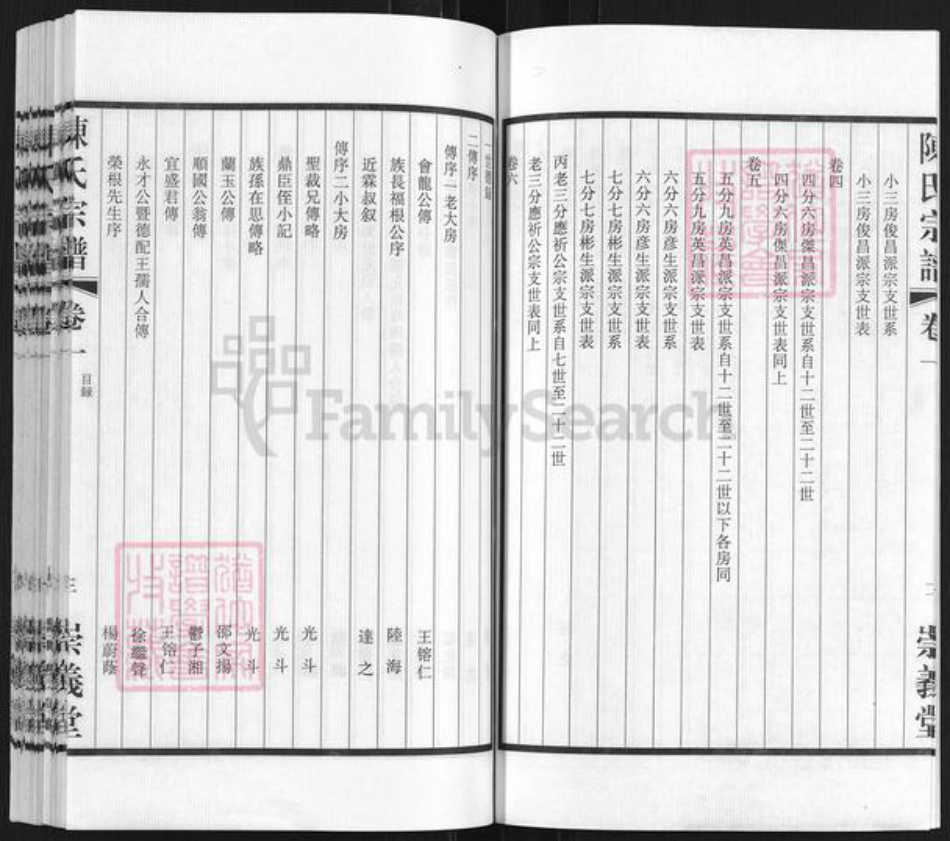 陳氏宗譜 卷一
三 崇義堂
小三房俊昌派宗支世系
小三房俊昌派宗支世表
卷四
四分六房傑昌派宗支世系自十二世至二十二世
四分六房傑昌派宗支世表同上
卷五
五分九房英昌派宗支世系自十二世至二十二世以下各房同
五分九房英昌派宗支世表
六分六房彦生派宗支世系
六分六房彦生派宗支世表
七分七房彬生派宗支世系
七分七房彬生派宗支世表
丙老三分應祈公宗支世系自七世至二十二世
老三分應祈公宗支世表同上
卷六
二傳序
傳序一老大房
會龍公傳 王镕仁
族長福根公序 陸海
近霖叔叙 達之
傳序二小大房
聖裁兄傳略 光斗
鼎臣侄小記 光斗
族孫在思傳略 光斗
蘭玉公傳 邵文揚
順國公翁傳 鬱子湘
宜盛君傳 王镕仁
永才公暨德配王孺人合傳 徐繼聲
榮根先生序 楊蔚蔭
陳氏宗譜 卷一
目録
三 崇義堂
FamilySearch